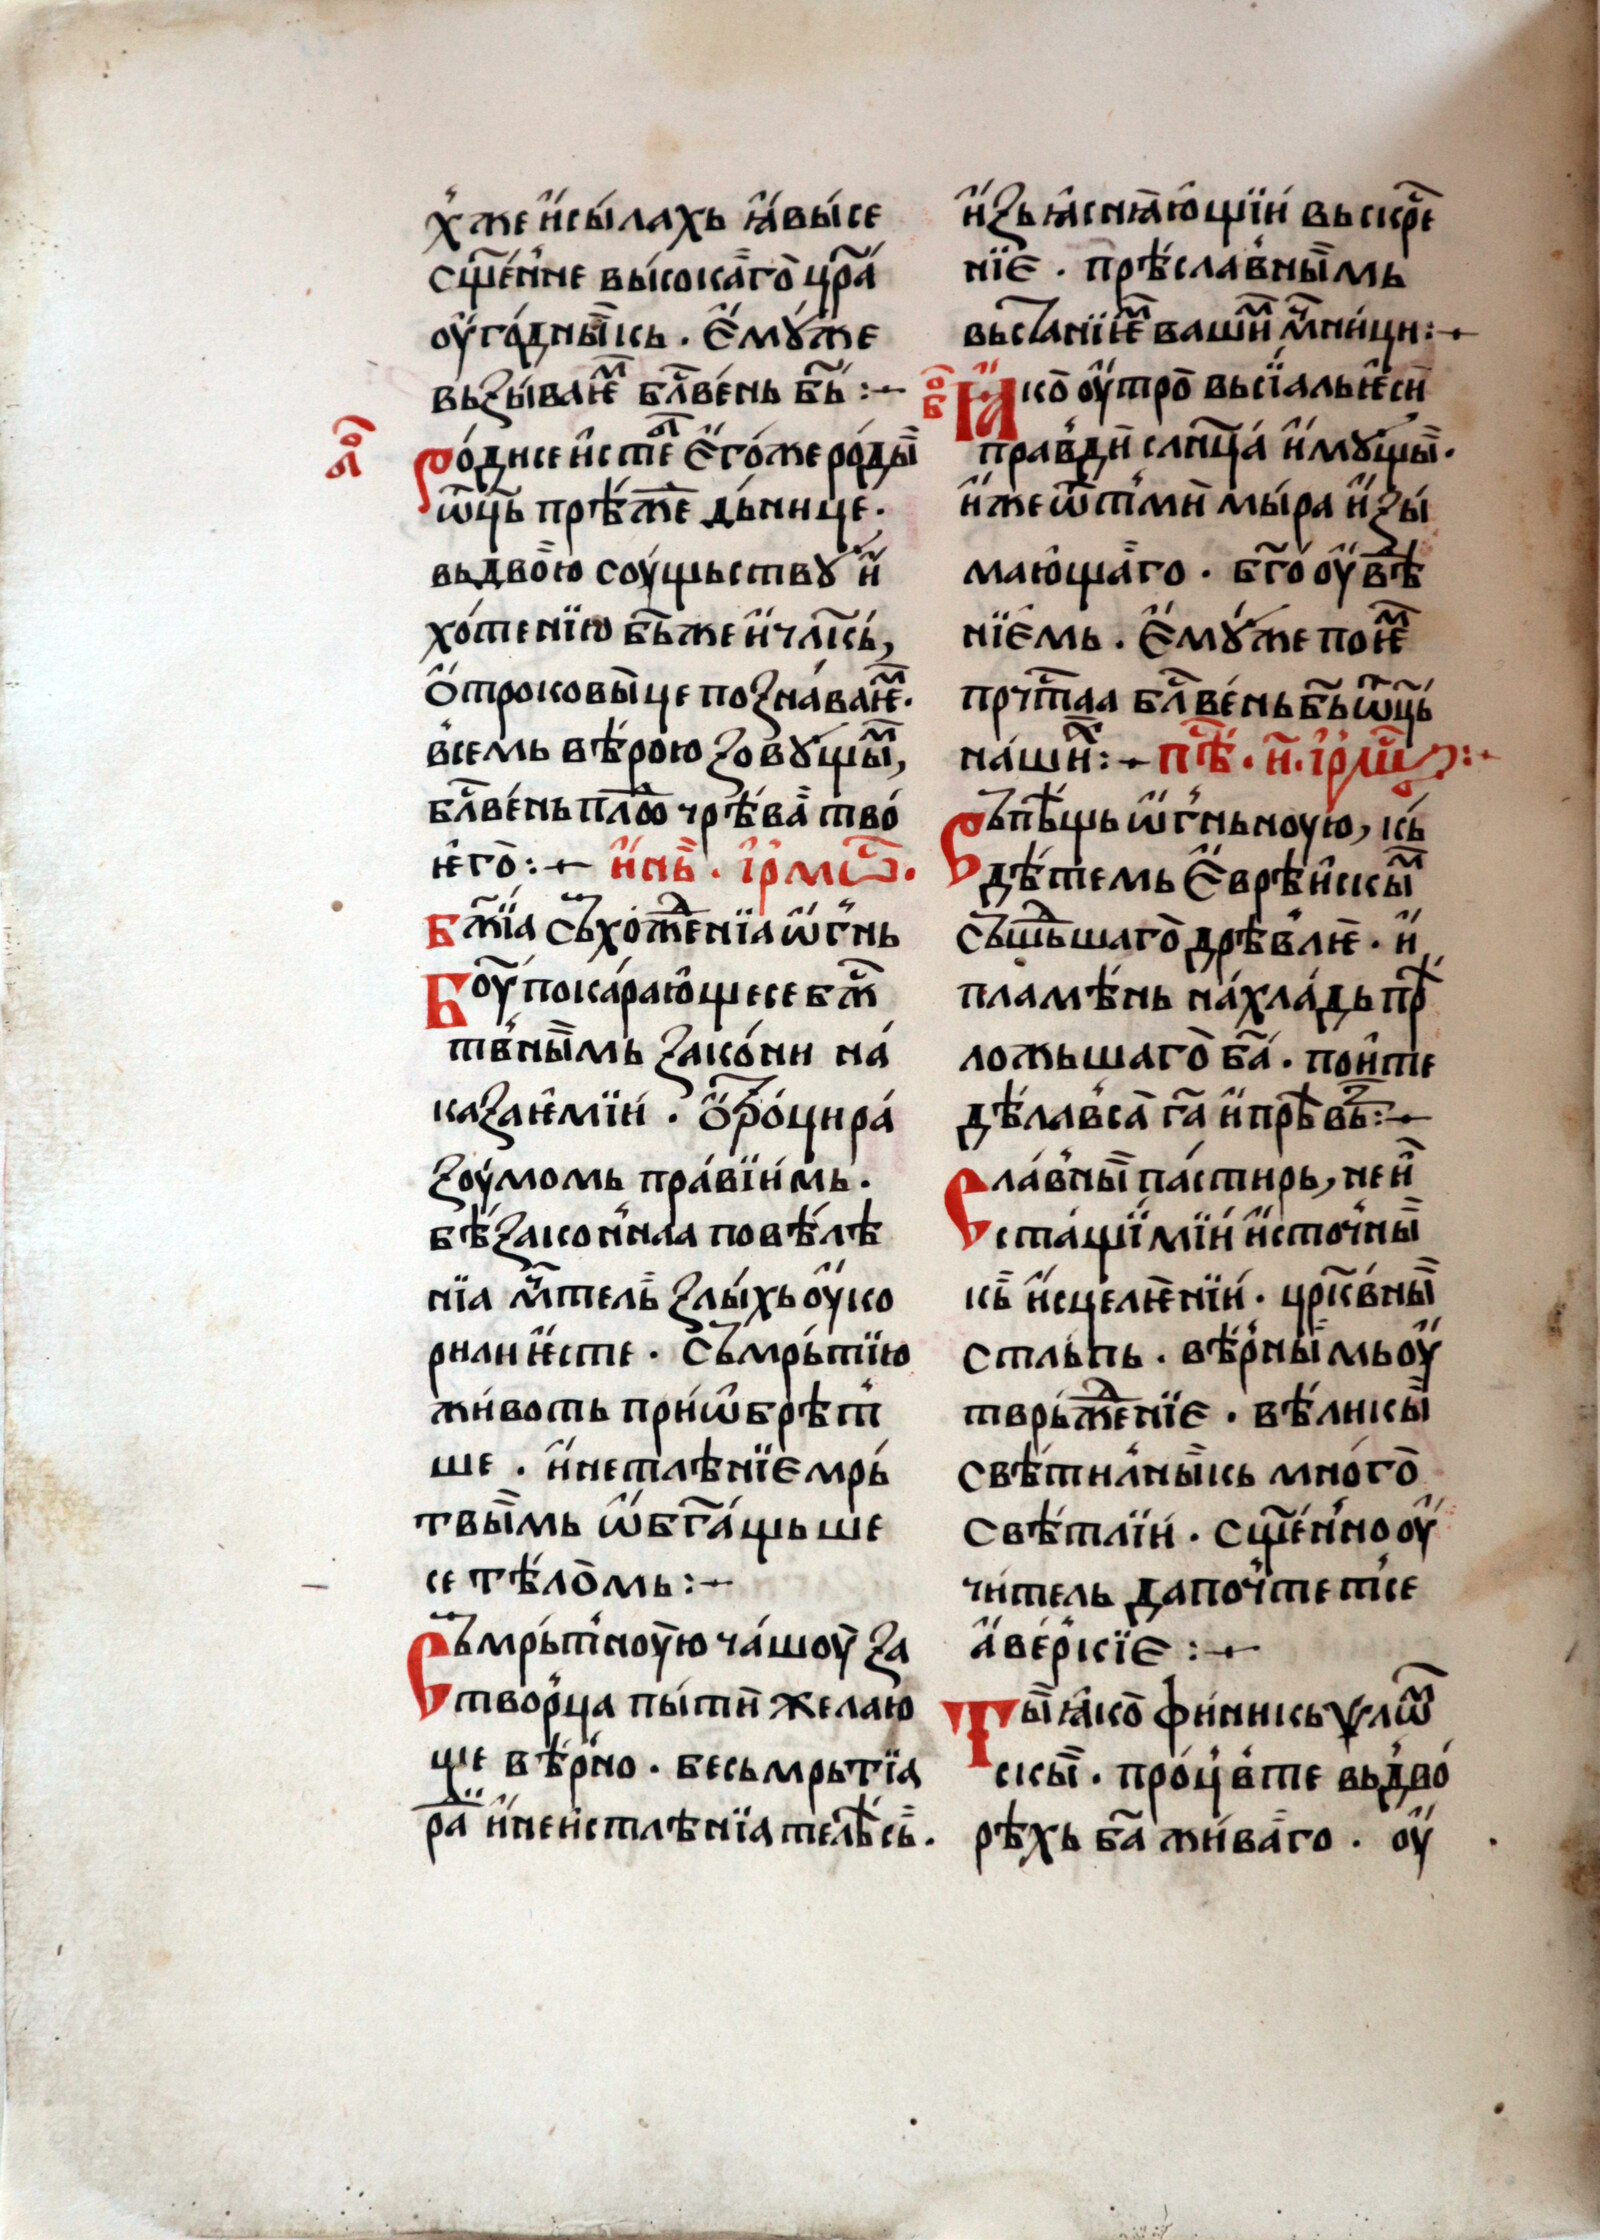 х҆же и҆си́лахь ꙗ҆ви́се
сщ҃е́нне высока́го̀ цр҃а́
оу҆го́дны̏кь · Є҆моу́же
вьзы́ваѥⷨ бл҃ве́нь б҃ь :~
боⷢ
Ро́дисе и҆стеⷧ Є҆го́же ро́ды̏
ѿц҃ь прѣ́жⷣе дь́нице ·
вьдво̀ю соу́щьствꙋ и҆
хо́тенїю б҃ьже и҆ чл҃кь́,
ѻ҆трокови̏це позна́ваѥⷨ ·
в̾семь вѣ́рою зовꙋ́щы̏ⷨ,
бл҃ве́нь плⷪ҇ чрѣ́ва̀ тво́
ѥ҆го̀ :~ и҆нь̏ · і҆рмо́ⷭ ·
Бж҃їа сьⷯхожⷣе́нїа ѡ҆г҆нь
Боу҆ пока́раю҆щесе бжⷭ
тв҆ны̏мь зако́ни на́
каза́ѥ҆мїи · ѻ҆ⷮро́ци ра́
зоу́момь пра́вїи́мь ·
бѣ́зако́н҆наа по вѣ́лѣ
нїа мⷱ҇тель̀ злы́хь оу҆ко
рили ѥ҆сте · сьⷨмрь́тїю
жи́воть при́ѡ҆брѣт҆
ше · и҆ нетлѣ́нїе мрь́
твы̏мь ѡ҆бг҃а́щьше
се тѣ́ло̀мь :~
Сь́мрьт҆ноу̀ю ча́шоу̀ за
твор҆ца пы́ти̏ желаю҆
ще вѣ́р҆но · бесьмрьтїа
ра̏ и҆ не и҆стлѣнїа тель̏сь̏ ·
и҆зьꙗсна́ю҆щїи́ вьскрⷭ҇е
нїе · прѣ́слав҆ны̏мь
вьста́нїѥⷨ ваши̏ⷨ мⷱ҇ни́ци :~
боⷢ
Ꙗ҆ко̀ оу҆́тро̀ вьсї́аль ѥ҆си̏
прав҆ди̏ слн҃ца́ и҆мꙋ́щы̏ ·
и҆же ѿ т҆ми̏ мы́ра и҆зы́
маю҆ща̀го · б҃го́оу҆вѣ̀
нїемь · Є҆мꙋ́же поѥⷨ
прчⷭ҇таа бл҃ве́нь б҃ь ѿц҃ь
на́ши̏ⷯ :~ пѣⷭ · и҃ · і҆рмоⷭ :~
Вь́пѣ́щь ѡ҆г҆ньноую, кь́
дѣ́темь Є҆врѣ́и҆скы̏ⷨ
сьⷲшь́шаго̀ дрѣ́в҆лѥ · и҆
пламѣ́нь на́хла́дь прѣⷣ
ложьшаго̀ б҃а́ · пои҆те
дѣ́лав҆са̀ г҃а и҆ прѣвьⷥ :~
Слав҆ны̏ па́стирь, не и҆
ста́щї́мїи́ и҆сточ҆ны̏
кь̏ и҆сцелѥ́нїи́ · цр҃ко́в҆ны̏
стльпь · вѣ́р҆ны̏мь оу҆
тврьжⷣе́нїе · вѣ́ликы̏
свѣ́тил҆ны̏кь мно́го̀
свѣ́тлїи́ · сщ҃е́н҆но оу҆
чи́тель да поч҆тет҆се
а҆ве́р҆кїе :~
Ты̏ ꙗ҆ко̀ фи́никь ѱлѡⷨ
скы̏ · про́ц҆в҆те вьд҆во́
рѣхь б҃а жи́ва̀го · оу҆